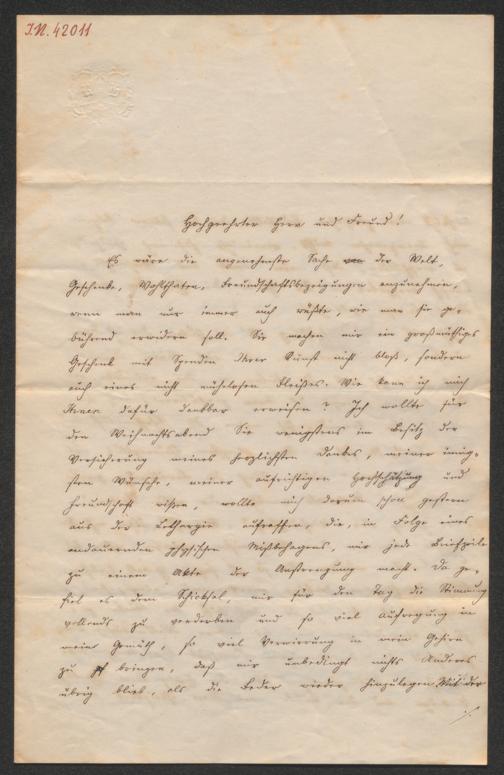 I.N. 42011
Hochgeehrter Herr und Freund!
Es wäre die angenehmste Sache von der Welt,
Geschenke, Wohlthaten, Freundschaftsbezeigungen anzunehmen,
wenn man nur immer auch wüßte, wie man sie ge-
bührend erwidern soll. Sie machen mir ein großmüthiges
Geschenk mit Spenden Ihrer Kunst nicht bloß, sondern
auch eines nicht mühelosen Fleißes. Wie kann ich mich
Ihnen dafür dankbar erweisen? Ich wollte für
den Weihnachtsabend Sie wenigstens im Besitz der
Versicherung meines herzlichsten Dankes, meiner innig-
sten Wünsche, meiner aufrichtigen Hochschätzung und
Freundschaft wissen, wollte mich darum schon gestern
aus der Lethargie aufraffen, die, in Folge eines
andauernden physischen Mißbehagens, mir jede Briefzeile
zu einem Akte der Anstrengung macht. Da ge-
fiel es dem Schicksal, mir für den Tag die Stimmung
vollends zu verderben und so viel Aufregung in
mein Gemüth, so viel Verwirrung in mein Gehirn
zu bringen, daß mir unbedingt nichts Anderes
übrig blieb, als die Feder wieder hinzulegen. Mit der